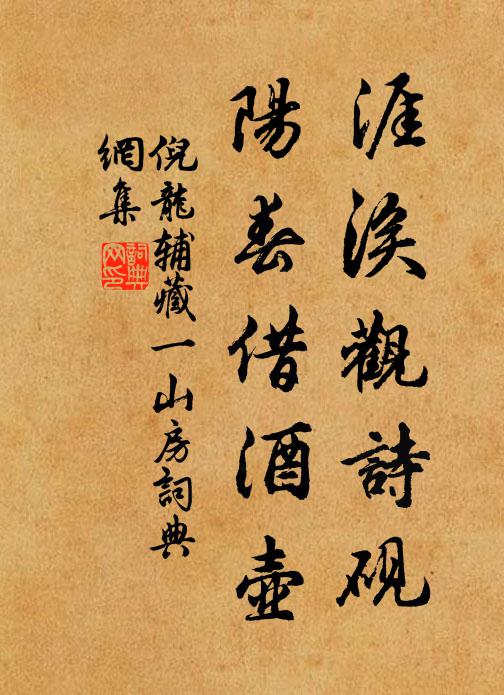 涯涘觀詩硯
陽春借酒壺
倪龍輔藏一山房詞典
網集
詞典
网印